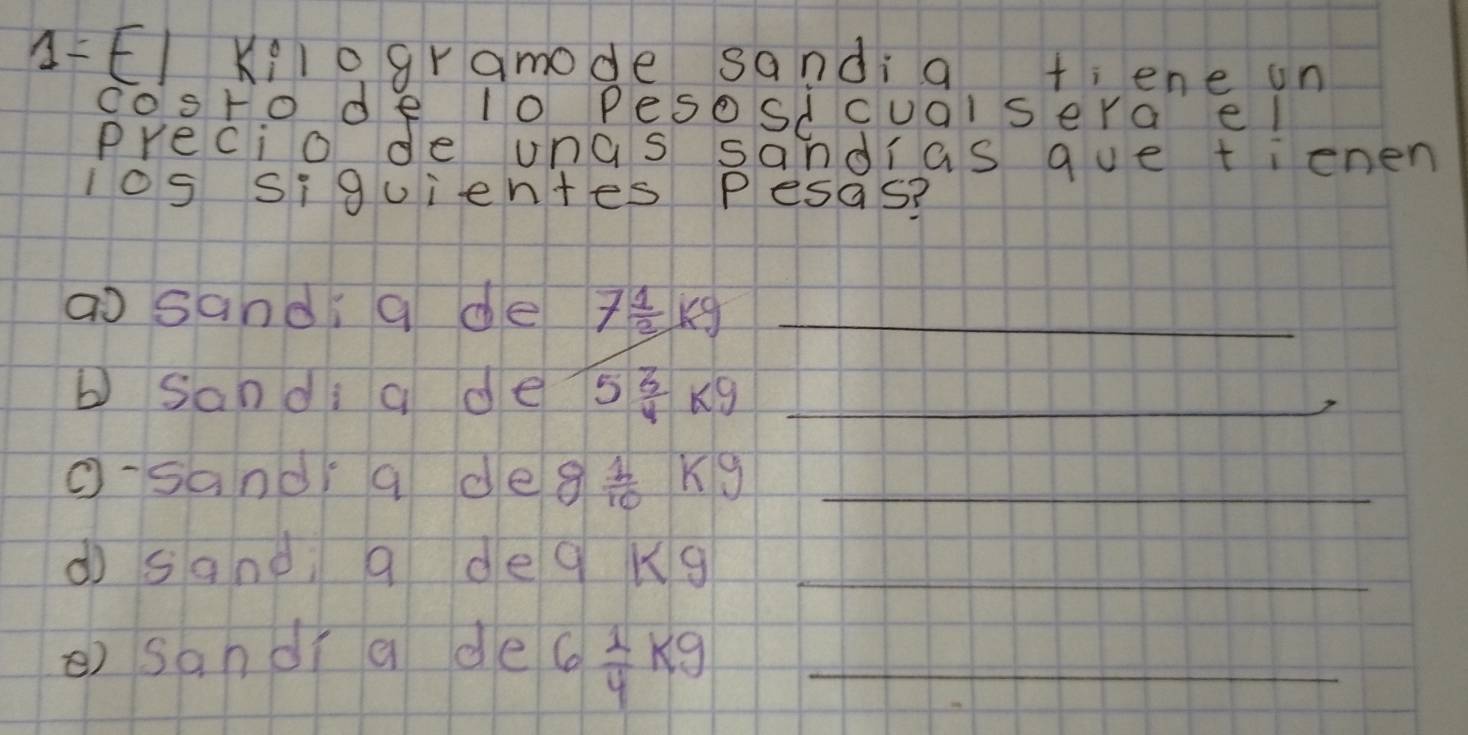 1=El Kilogramo de sandia tiene un
costo de 10 Pesos¿cual sera el
precio de unas sandías que tienen
los siguientes Pesas?
a) sandia de 7 1/2 kg
b) sandia de 5 3/4 kg
c)-sandia de 8 1/10 Kg
d) sandia de 9 Kg
e) sandía de 6 1/4 kg